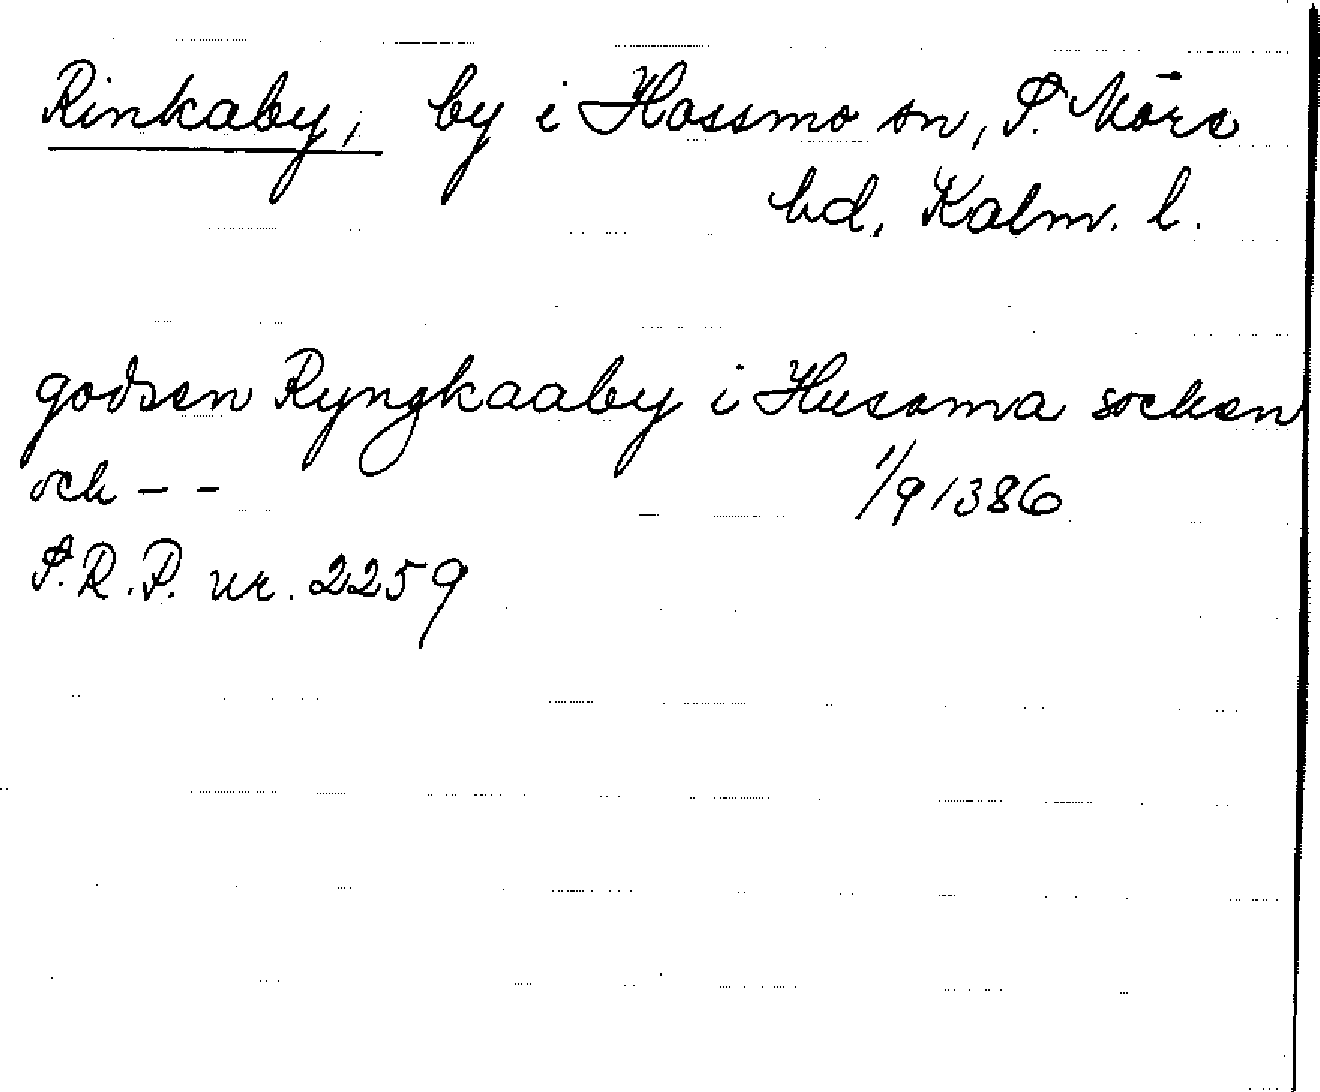 Rinkaby, by i Hossmo sn, S. Möre
hd, Kalm. l.
godsen Ryngkaaby i Husama socken
och - - 1/9 1386
S.R.P. nr. 2259